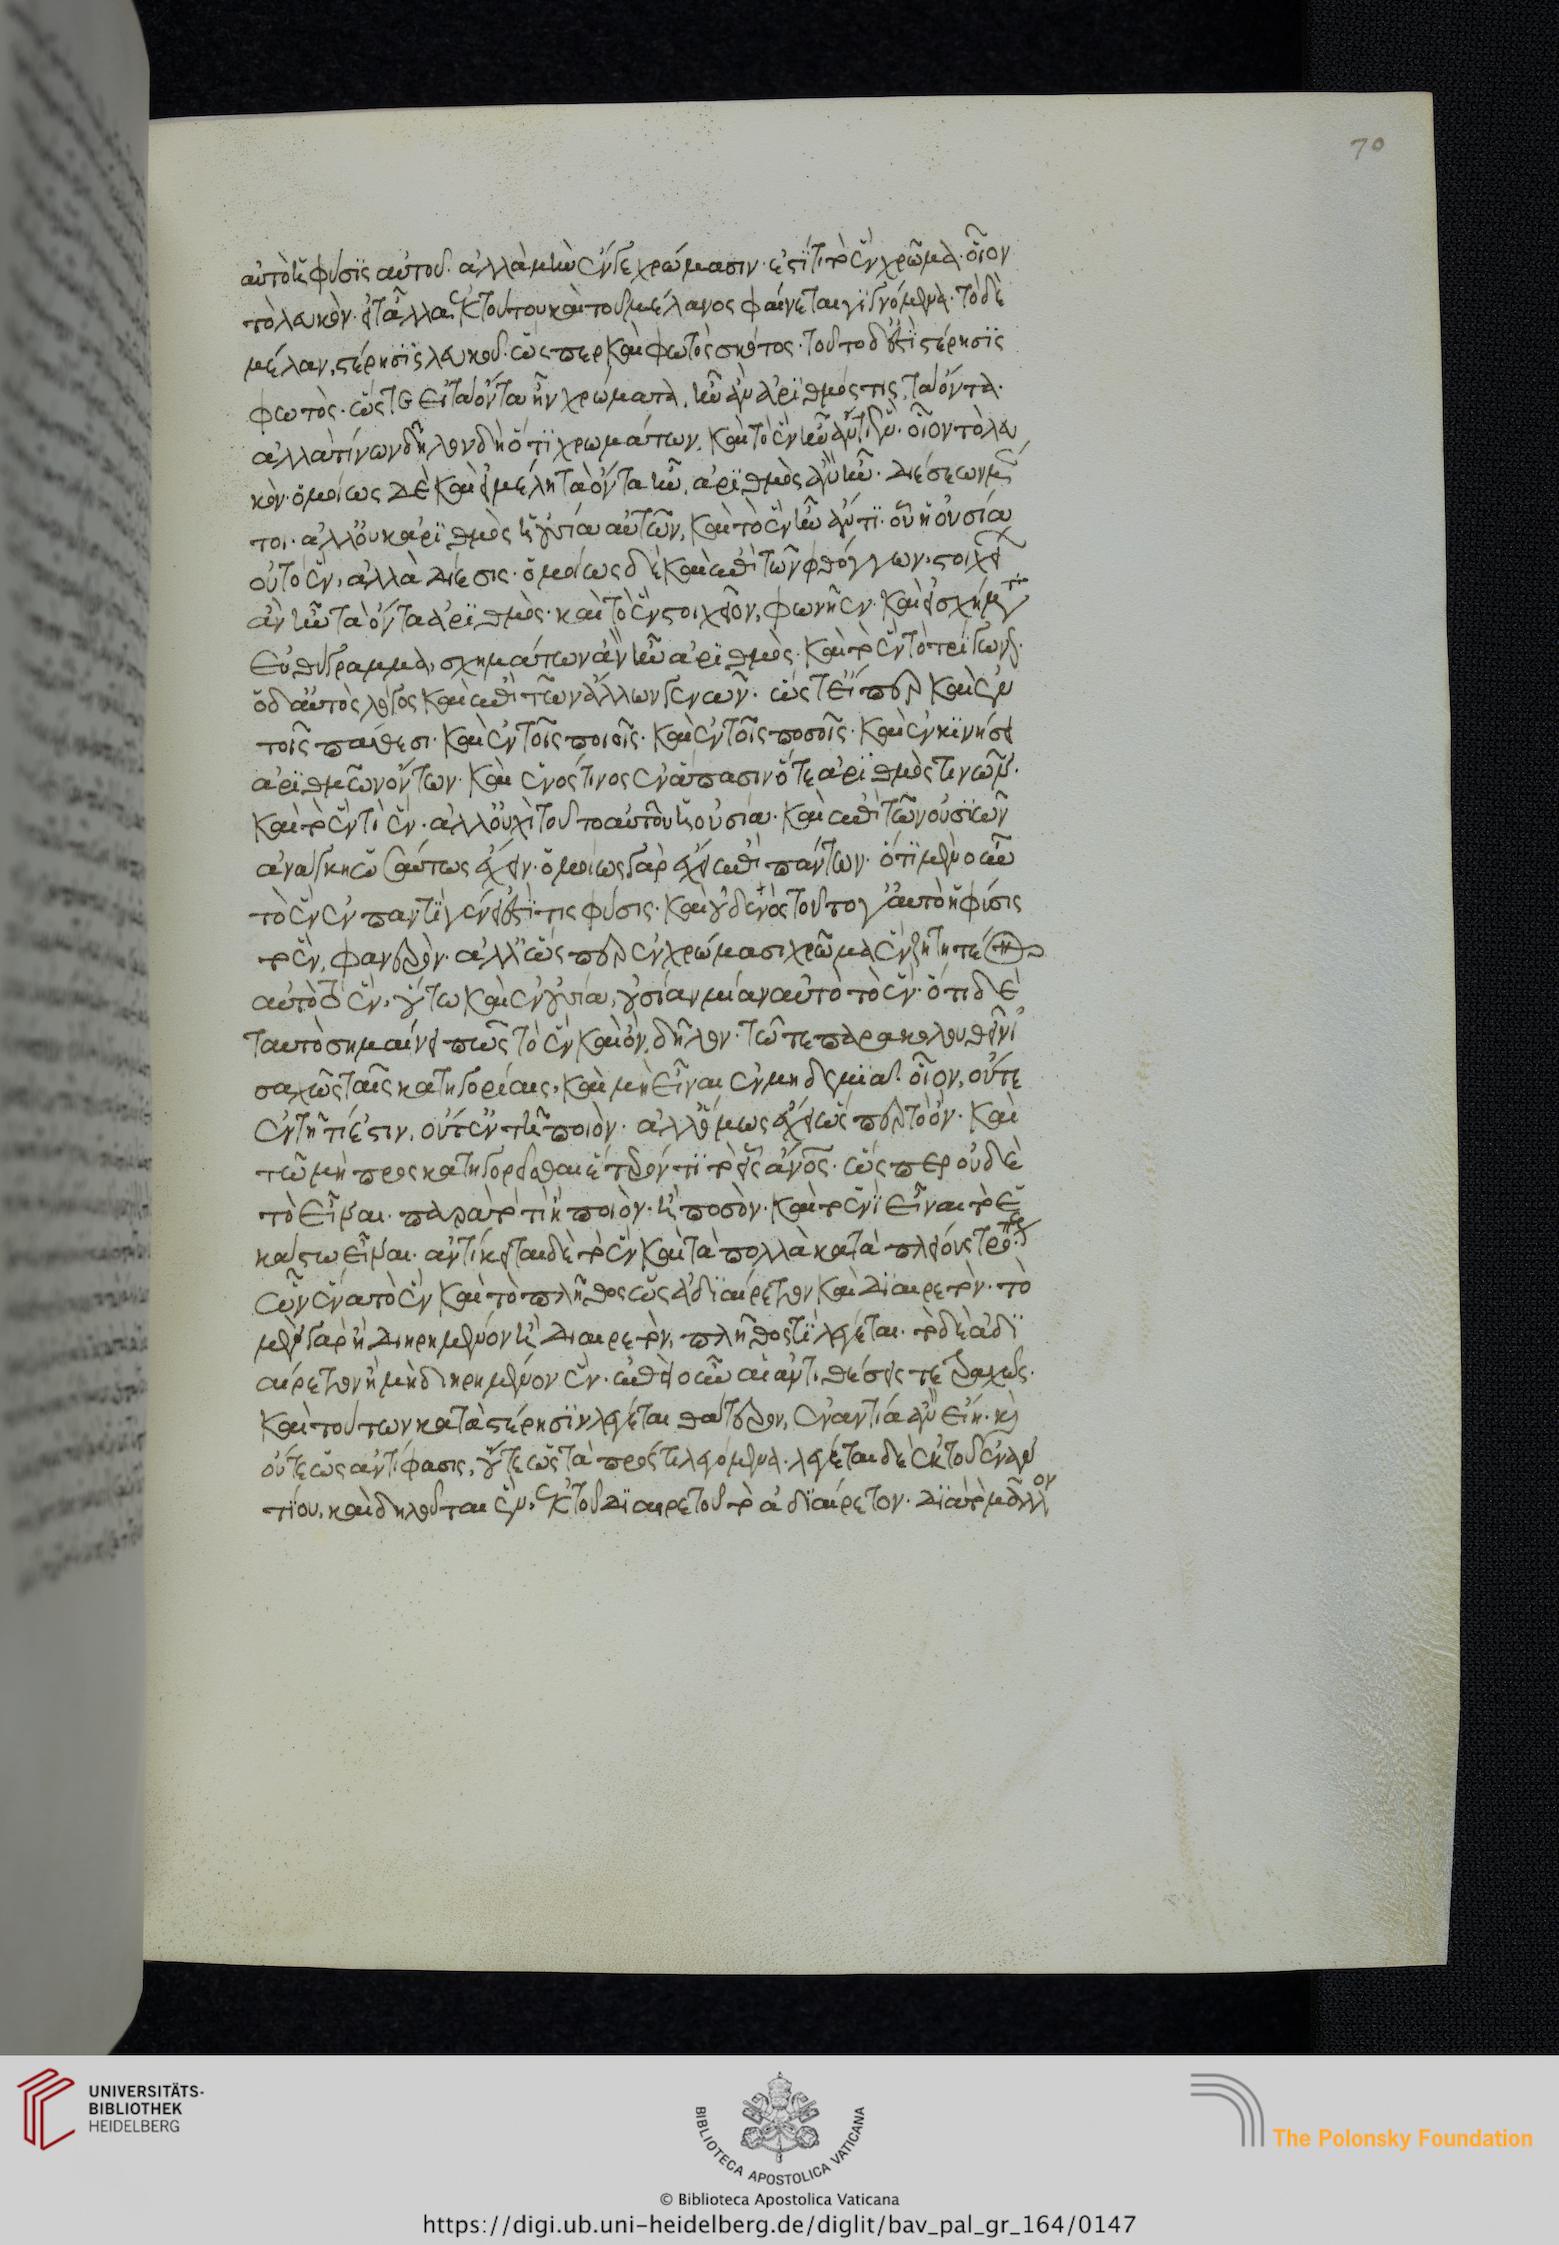 αὐτὸ ἡ φύσϊς αὐτοῦ. ἀλλὰ μὴν ἔν γε χρώμασιν ἐστϊ τὸ ἓν χρῶμα. οἷον
τὸ λευκὸν. εἶτἆλλα ἐκ τούτου καὶ τοῦ μέλανος φαίνεται γϊγνόμενα. τὸ δὲ
μέλαν, στέρησϊς λευκοῦ. ὥσπερ καὶ φωτὸς σκότος. τοῦτο δ' ἐστϊ στέρησϊς
φωτὸς. ὥστε εἰ τὰ ὄντα ἦν χρώματα, ἦν ἂν ἀρϊθμός τις τὰ ὄντα.
ἀλλὰ τίνων δῆλον δὴ ὅτϊ χρωμάτων, καὶ τὸ ἓν ἦν ἄν τι ἓν. οἷον τὸ λευ
κόν. ὁμοίως δὲ καὶ εἰ μέλη τὰ ὄντα ἦν, ἀρϊθμὸς ἂν ἦν. διέσεων μέν
τοι. ἀλλ' οὐκ ἀρϊθμὸς ἡ οὐσία αὐτῶν, καὶ τὸ ἓν ἦν ἄν τϊ. οὗ ἡ οὐσία
οὐ τὸ ἓν, ἀλλὰ δίεσις. ὁμοίως δὲ καὶ ἐπὶ τῶν φθόγγων, στοιχεί
ἂν ἦν τὰ ὄντα ἀρϊθμὸς. καὶ τὸ ἓν στοιχεῖον, φωνῆεν. καὶ εἰ σχήματα
εὐθύγραμμα, σχημάτων ἂν ἦν ἀρϊθμὸς. καὶ τὸ ἓν τὸ τρίγωνον.
ὁ δ' αὐτὸς λόγος καὶ ἐπὶ τῶν ἄλλων γενῶν. ὥστ' εἴπερ καὶ ἐν
τοῖς πάθεσι. καὶ ἐν τοῖς ποιοῖς. καὶ ἐν τοῖς ποσοῖς. καὶ ἐν κϊνήσει
ἀρϊθμῶν ὄντων. καὶ ἑνός τινος ἐν ἅπασιν ὅ τε ἀρϊθμὸς τινῶν.
καὶ τὸ ἓν τὶ ἓν. ἀλλ' οὐχὶ τοῦτο αὐτοῦ ἡ οὐσία. καὶ ἐπὶ τῶν οὐσϊῶν
ἀνάγκη ὡσαύτως ἔχειν. ὁμοίως γὰρ ἔχει ἐπὶ πάντων. ὅτϊ μὲν οὖν
τὸ ἓν ἐν παντὶ γένει ἐστί τις φύσις. καὶ οὐδενὸς τοῦτο γ' αὐτὸ ἡ φύσις
τὸ ἓν, φανερὸν. ἀλλ' ὥσπερ ἐν χρώμασι χρῶμα ἓν ζητητέον
αὐτὸ τὸ ἓν, οὕτω καὶ ἐν οὐσία, οὐσίαν μίαν αὐτὸ τὸ ἓν. ὅτι δὲ
ταυτὸ σημαίνει πως τὸ ἓν καὶ ὄν, δῆλον. τῶ τε παρακολουθεῖν ἰ
σαχῶς ταῖς κατηγορίαις, καὶ μὴ εἶναι ἐν μηδεμϊᾶ. οἷον, οὔτε
ἐν τῆ τί ἐστιν, οὔτ' ἐν τῆ ποιὸν. ἀλλ' ὁμοίως ἔχει ὥσπερ τὸ ὄν. καὶ
τῶ μὴ προσκατηγορεῖσθαι ἕτερόν τϊ τὸ εἷς ἄνθρωπος. ὥσπερ οὐδὲ
τὸ εἶναι. παρὰ τὸ τὶ ἢ ποιὸν. ἢ ποσὸν. καὶ τὸ ἑνϊ εἶναι τὸ ἑ
κάστω εἶναι. ἀντίκειται δὲ τὸ ἓν καὶ τὰ πολλὰ κατὰ πλείους τρόπους
ὧν ἓν ἀπὸ ἓν καὶ τὸ πλῆθος ὡς ἀδϊαίρετον καὶ δϊαιρετὸν. τὸ
μὲν γὰρ ἢ διηρημένον ἢ διαιρετὸν, πλῆθος τϊ λέγεται. τὸ δὲ ἀδϊ
αίρετον ἢ μὴ διηρημένον ἓν. ἐπεὶ οὖν αἱ ἀντιθέσεις τετραχῶς.
καὶ τούτων κατὰ στέρησϊν λέγεται θάτερον, ἐναντία ἂν εἴη. καὶ
οὔτε ὡς ἀντίφασις, οὔτε ὡς τὰ πρός τι λεγόμενα. λέγεται δὲ ἐκ τοῦ ἐναν
τίου. καὶ δηλοῦται ἓν, ἐκ τοῦ δϊαιρετοῦ τὸ ἀδϊαίρετον. δϊὰ τὸ μᾶλλον
70
UNIVERSITÄTS-
BIBLIOTHEK
HEIDELBERG
BIBLIOTECA APOSTOLICA VATICANA
The Polonsky Foundation
© Biblioteca Apostolica Vaticana
https://digi.ub.uni-heidelberg.de/diglit/bav_pal_gr_164/0147